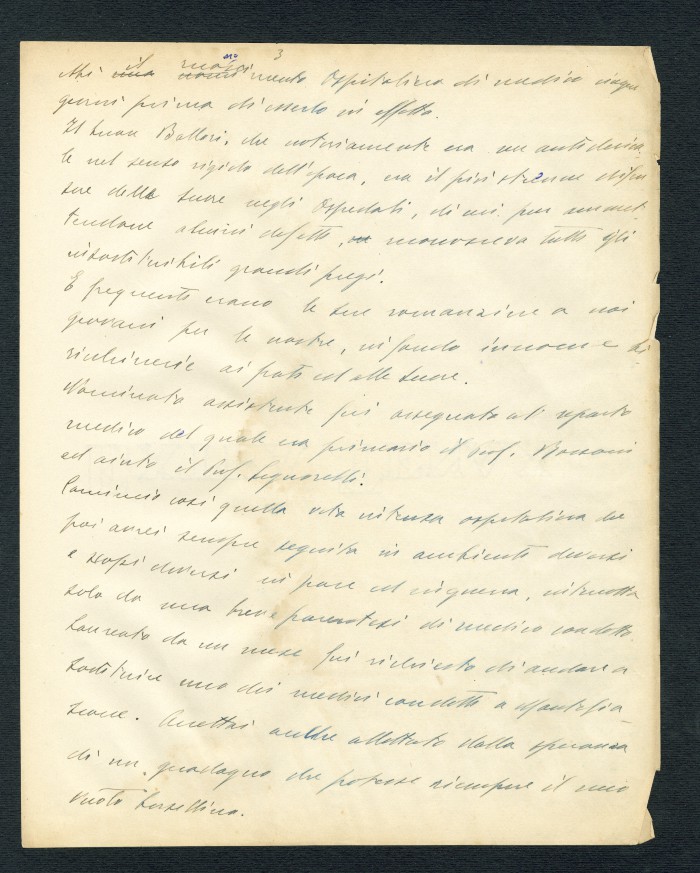 3
il
giorni prima di esserlo in effetto.
Il buon Ballori, che notoriamente era un anticlerica-
le nel senso rigido dell'epoca, era il più strenuo difen
sore delle suore negli Ospedali, di cui pur ammet-
tendone alcuni difetti, riconosceva tutti gli
insostituibili grandi pregi.
E frequenti erano le sue romanzine a noi
giovani per le nostre,
ai frati ed alle suore.
Nominato assistente fui assegnato al reparto
medico del quale era primario il Prof.
ed aiuto il Prof. Signorelli.
Cominciò così quella vita intensa ospitalina che
poi avrei sempre seguita in ambienti diversi
e scopi diversi in pace ed in guerra, interrotta
solo da una breve parentesi di medico condotto.
Laureato da un mese fui richiesto di andare a
sostituire uno dei medici condotti a Montefia-
scone. Accettai anche allettato dalla speranza
di un guadagno che potesse riempire il mio
vuoto borsellino.